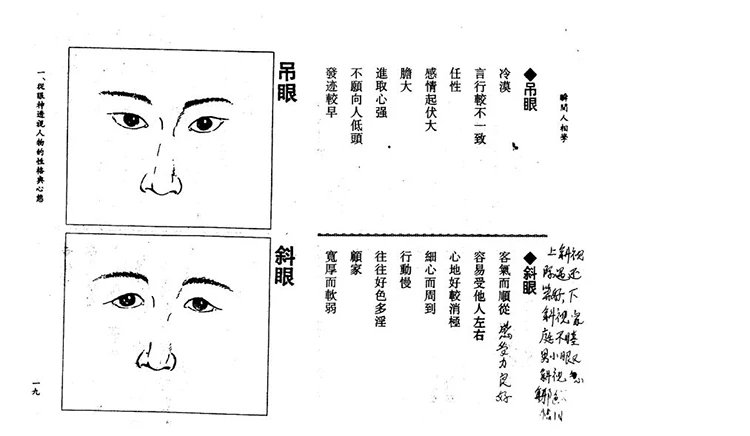 瞬間人相學
◆吊眼
冷漠
言行較不一致
任性
感情起伏大
膽大
進取心强
不願向人低頭
發迹較早
◆斜眼
客氣而順從 感受力良好
容易受他人左右
心地好較消極
細心而周到
行動慢
往往好色多淫
顧家
寬厚而軟弱
上斜視
際遇還
好,下
斜視家
庭不睦
男小眼又
斜視
吊眼
斜眼
一、從眼神透視人物的性格與心態
一九